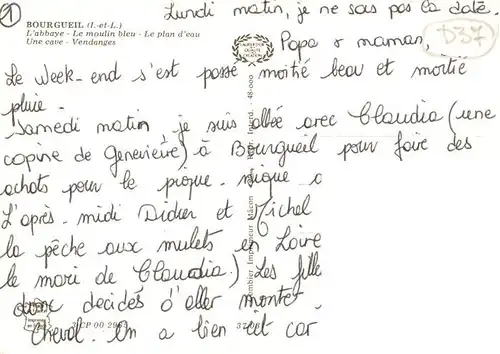 1
BOURGUEIL (I.-et-L.)
L'abbaye - Le moulin bleu - Le plan d'eau
Une cave - Vendanges
Lundi matin, je ne sais pas la date.
D37
Papa & maman,
Le week-end s'est passé moitié beau et moitié
pluie.
Samedi matin, je suis allée avec Claudia (une
copine de Genevieve) à Bourgueil pour faire des
achats pour le pique-nique
L'après-midi Didier et Michel
la pêche aux mulets en Loire
le mari de Claudia) Les fille
donc décidés d'aller monter
cheval. On a bien car
Imprimeur Mâcon
48-000
CP 00